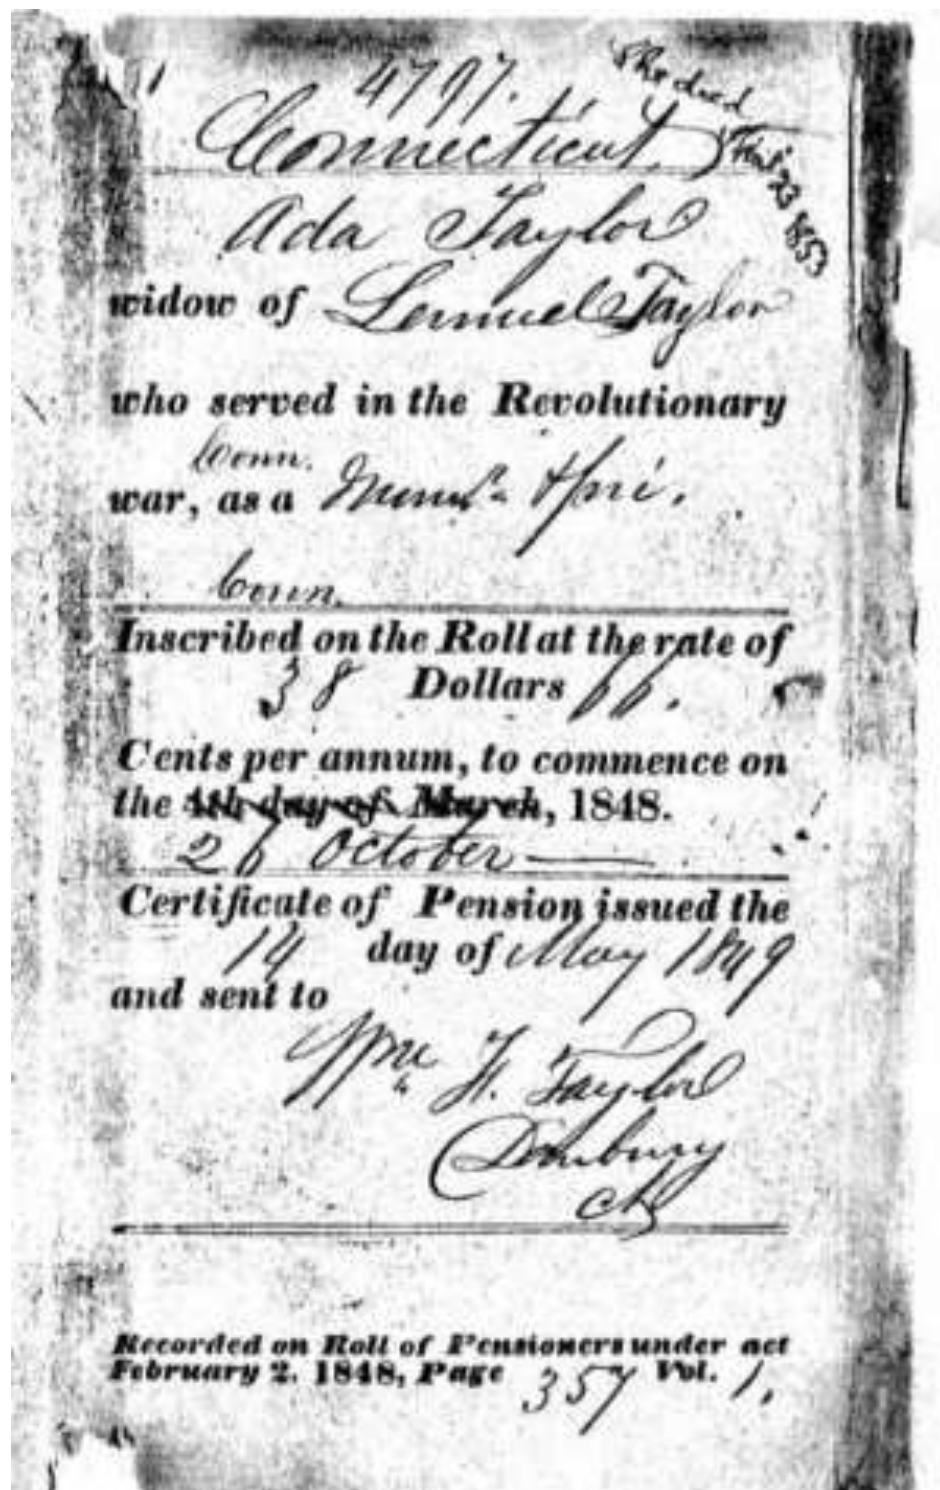 4797.
She died
Connecticut.
23 1853
Ada Taylor
widow of Lemuel Taylor
who served in the Revolutionary
Conn.
war, as a & Pri.
Conn.
Inscribed on the Roll at the rate of
38 Dollars 66.
Cents per annum, to commence on
the 4th day of March, 1848.
26 October
Certificate of Pension issued the
14 day of May 1849
and sent to
Wm F. Taylor
Danbury
Ct
Recorded on Roll of Pensioners under act
February 2, 1848, Page 357 Vol. 1.